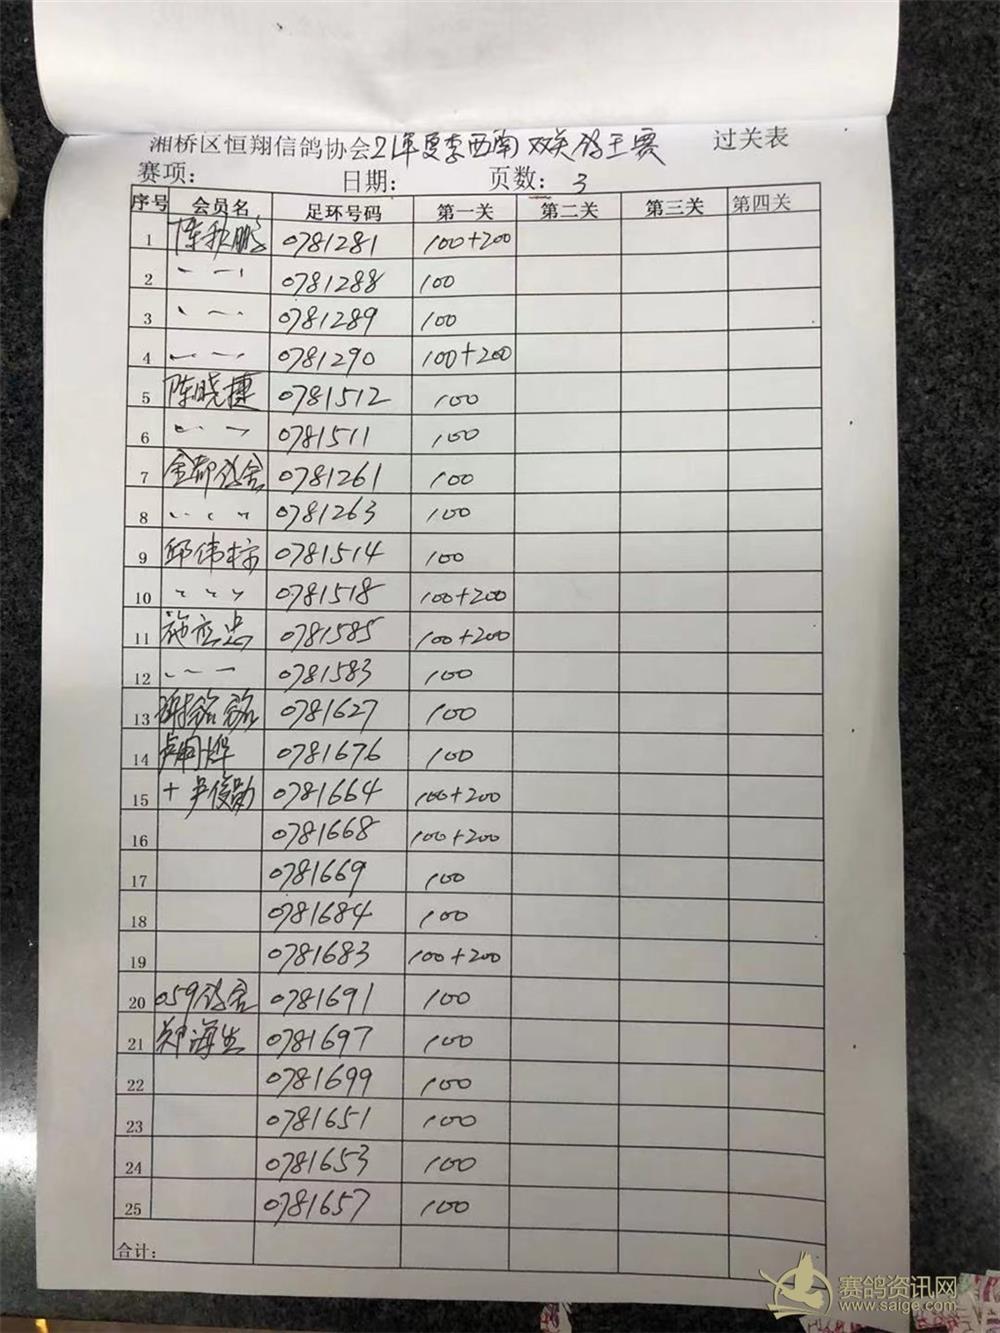 湘桥区恒翔信鸽协会21年夏季西南双关鸽王赛 过关表
赛项: 日期: 页数: 3
序号 会员名 足环号码 第一关 第二关 第三关 第四关
1 陈秋鹏 0781281 100+200
2 0781288 100
3 0781289 100
4 0781290 100+200
5 陈晓捷 0781512 100
6 0781511 100
7 金都鸽舍 0781261 100
8 0781263 100
9 邱伟标 0781514 100
10 0781518 100+200
11 施应忠 0781585 100+200
12 0781583 100
13 0781627 100
14 0781676 100
15 + 尹俊勋 0781664 100+200
16 0781668 100+200
17 0781669 100
18 0781684 100
19 0781683 100+200
20 059鸽舍 0781691 100
21 郑海生 0781697 100
22 0781699 100
23 0781651 100
24 0781653 100
25 0781657 100
合计:
赛鸽资讯网
www.saige.com